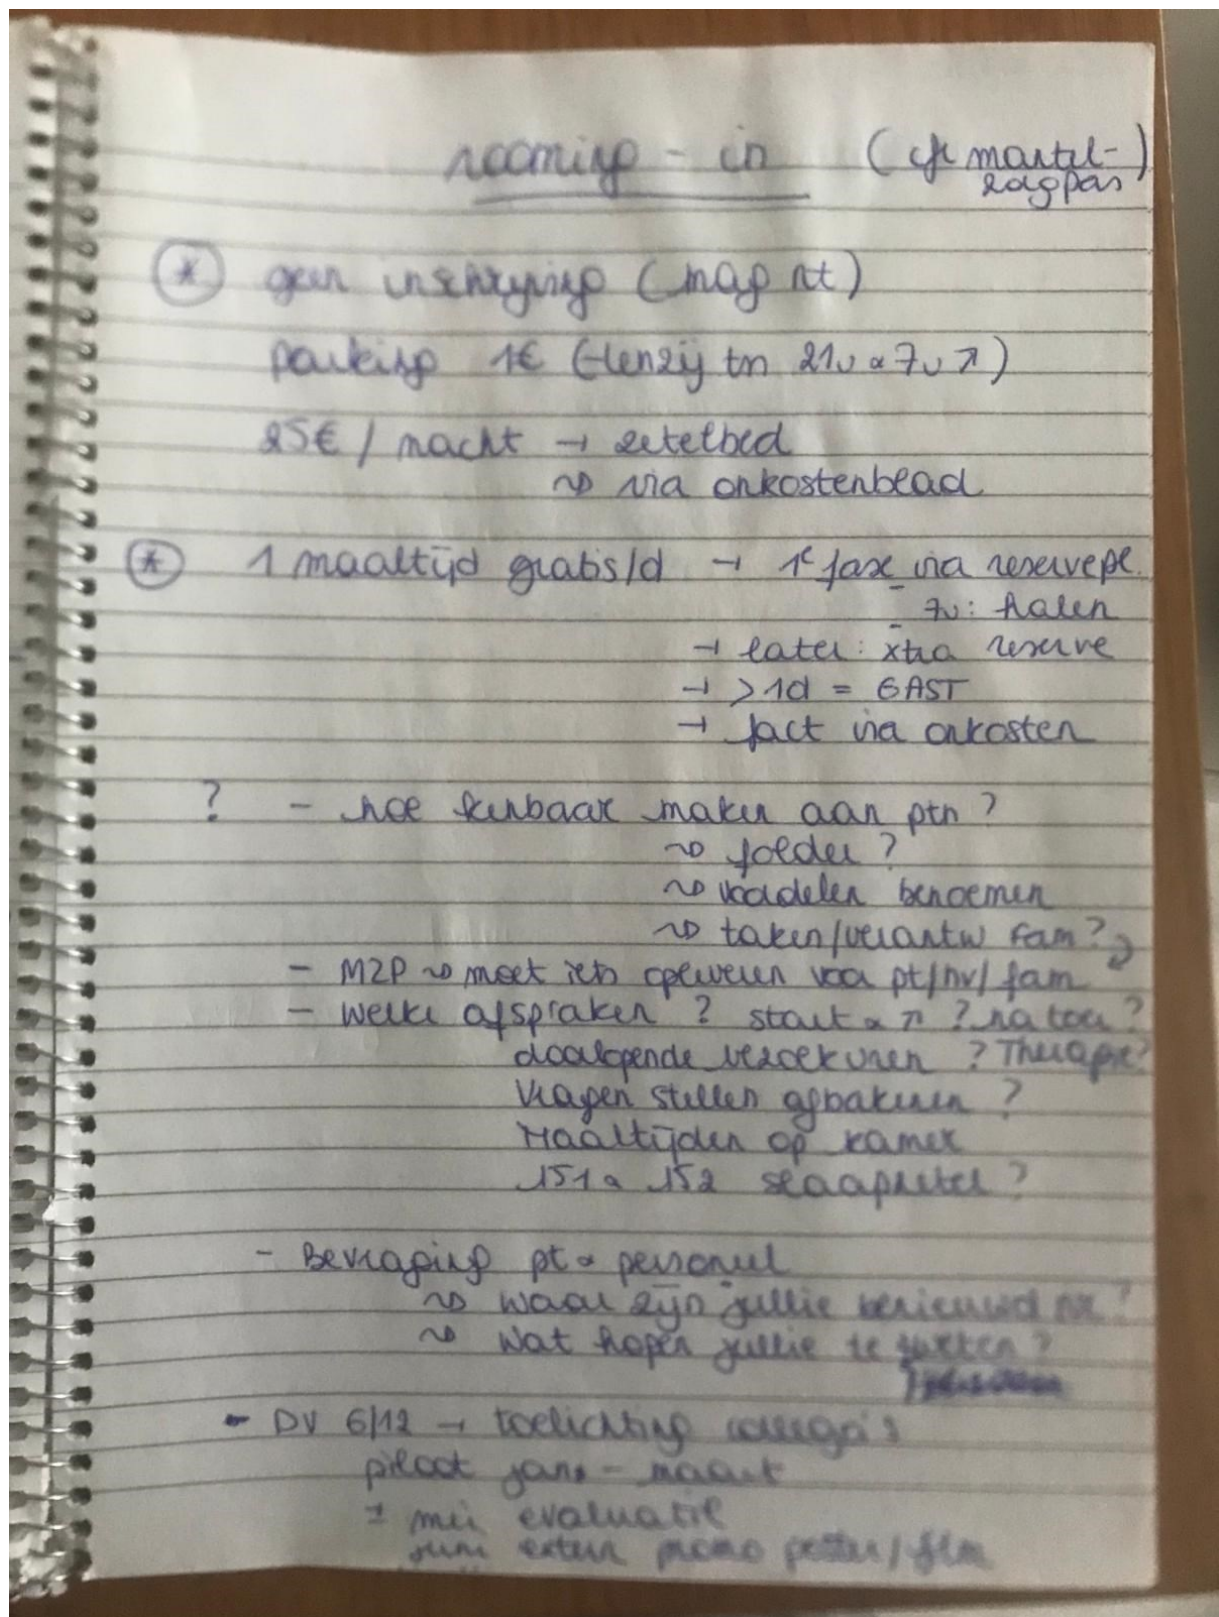 rooming - in (cfr mantel-
zorgpas)
* geen inschrijving (mag nt)
parking 1€ (tenzij tn 21u & 7u ↗)
25€ / nacht → zetelbed
~> via onkostenblad
* 1 maaltijd gratis/d → 1e fase via reservepl.
- 7u: halen
→ later: xtra reserve
→ >1d = GAST
→ fact via onkosten
? - hoe kenbaar maken aan ptn ?
~> folder ?
~> voordelen benoemen
~> taken/verantw fam ?
- MZP ~> moet iets opleveren voor pt/hv/fam
- welke afspraken ? start & ↗ ? na toer ?
doorlopende bezoekuren ? Therapie?
Vragen stellen afbakenen ?
Maaltijden op kamer
151 & 152 slaapzetel ?
- Bevraging pt & personeel
~> waar zijn jullie benieuwd nr ?
~> wat hopen jullie te
- DV 6/12 → toelichting collega's
piloot jan. - maart
± mei evaluatie
juni extern promo poster / film